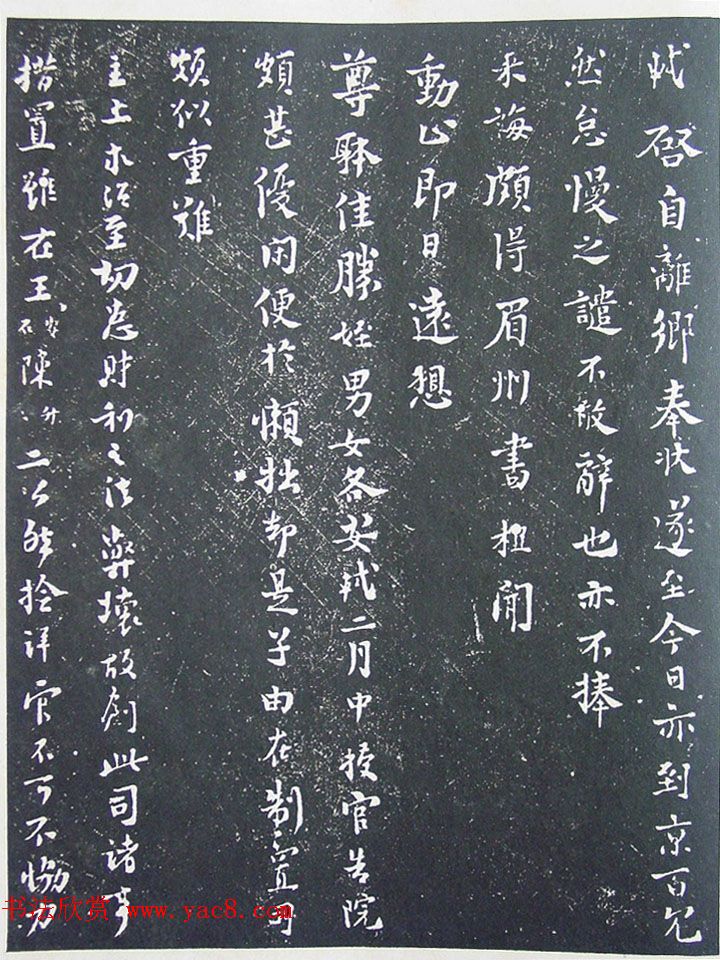 軾啓自離鄉奉狀遂至今日亦到京百冗
然怠慢之譴不敢辭也亦不捧
来誨頗得眉州書粗聞
動止即日遠想
尊躰佳勝姪男女各安軾二月中授官告院
頗甚優閑便於懶拙却是子由在制置司
頗似重難
主上求治至切患財利之法弊壞故創此司諸事
措置雖在王安石陳升二公然檢詳官不可不協力
书法欣赏 www.yac8.com